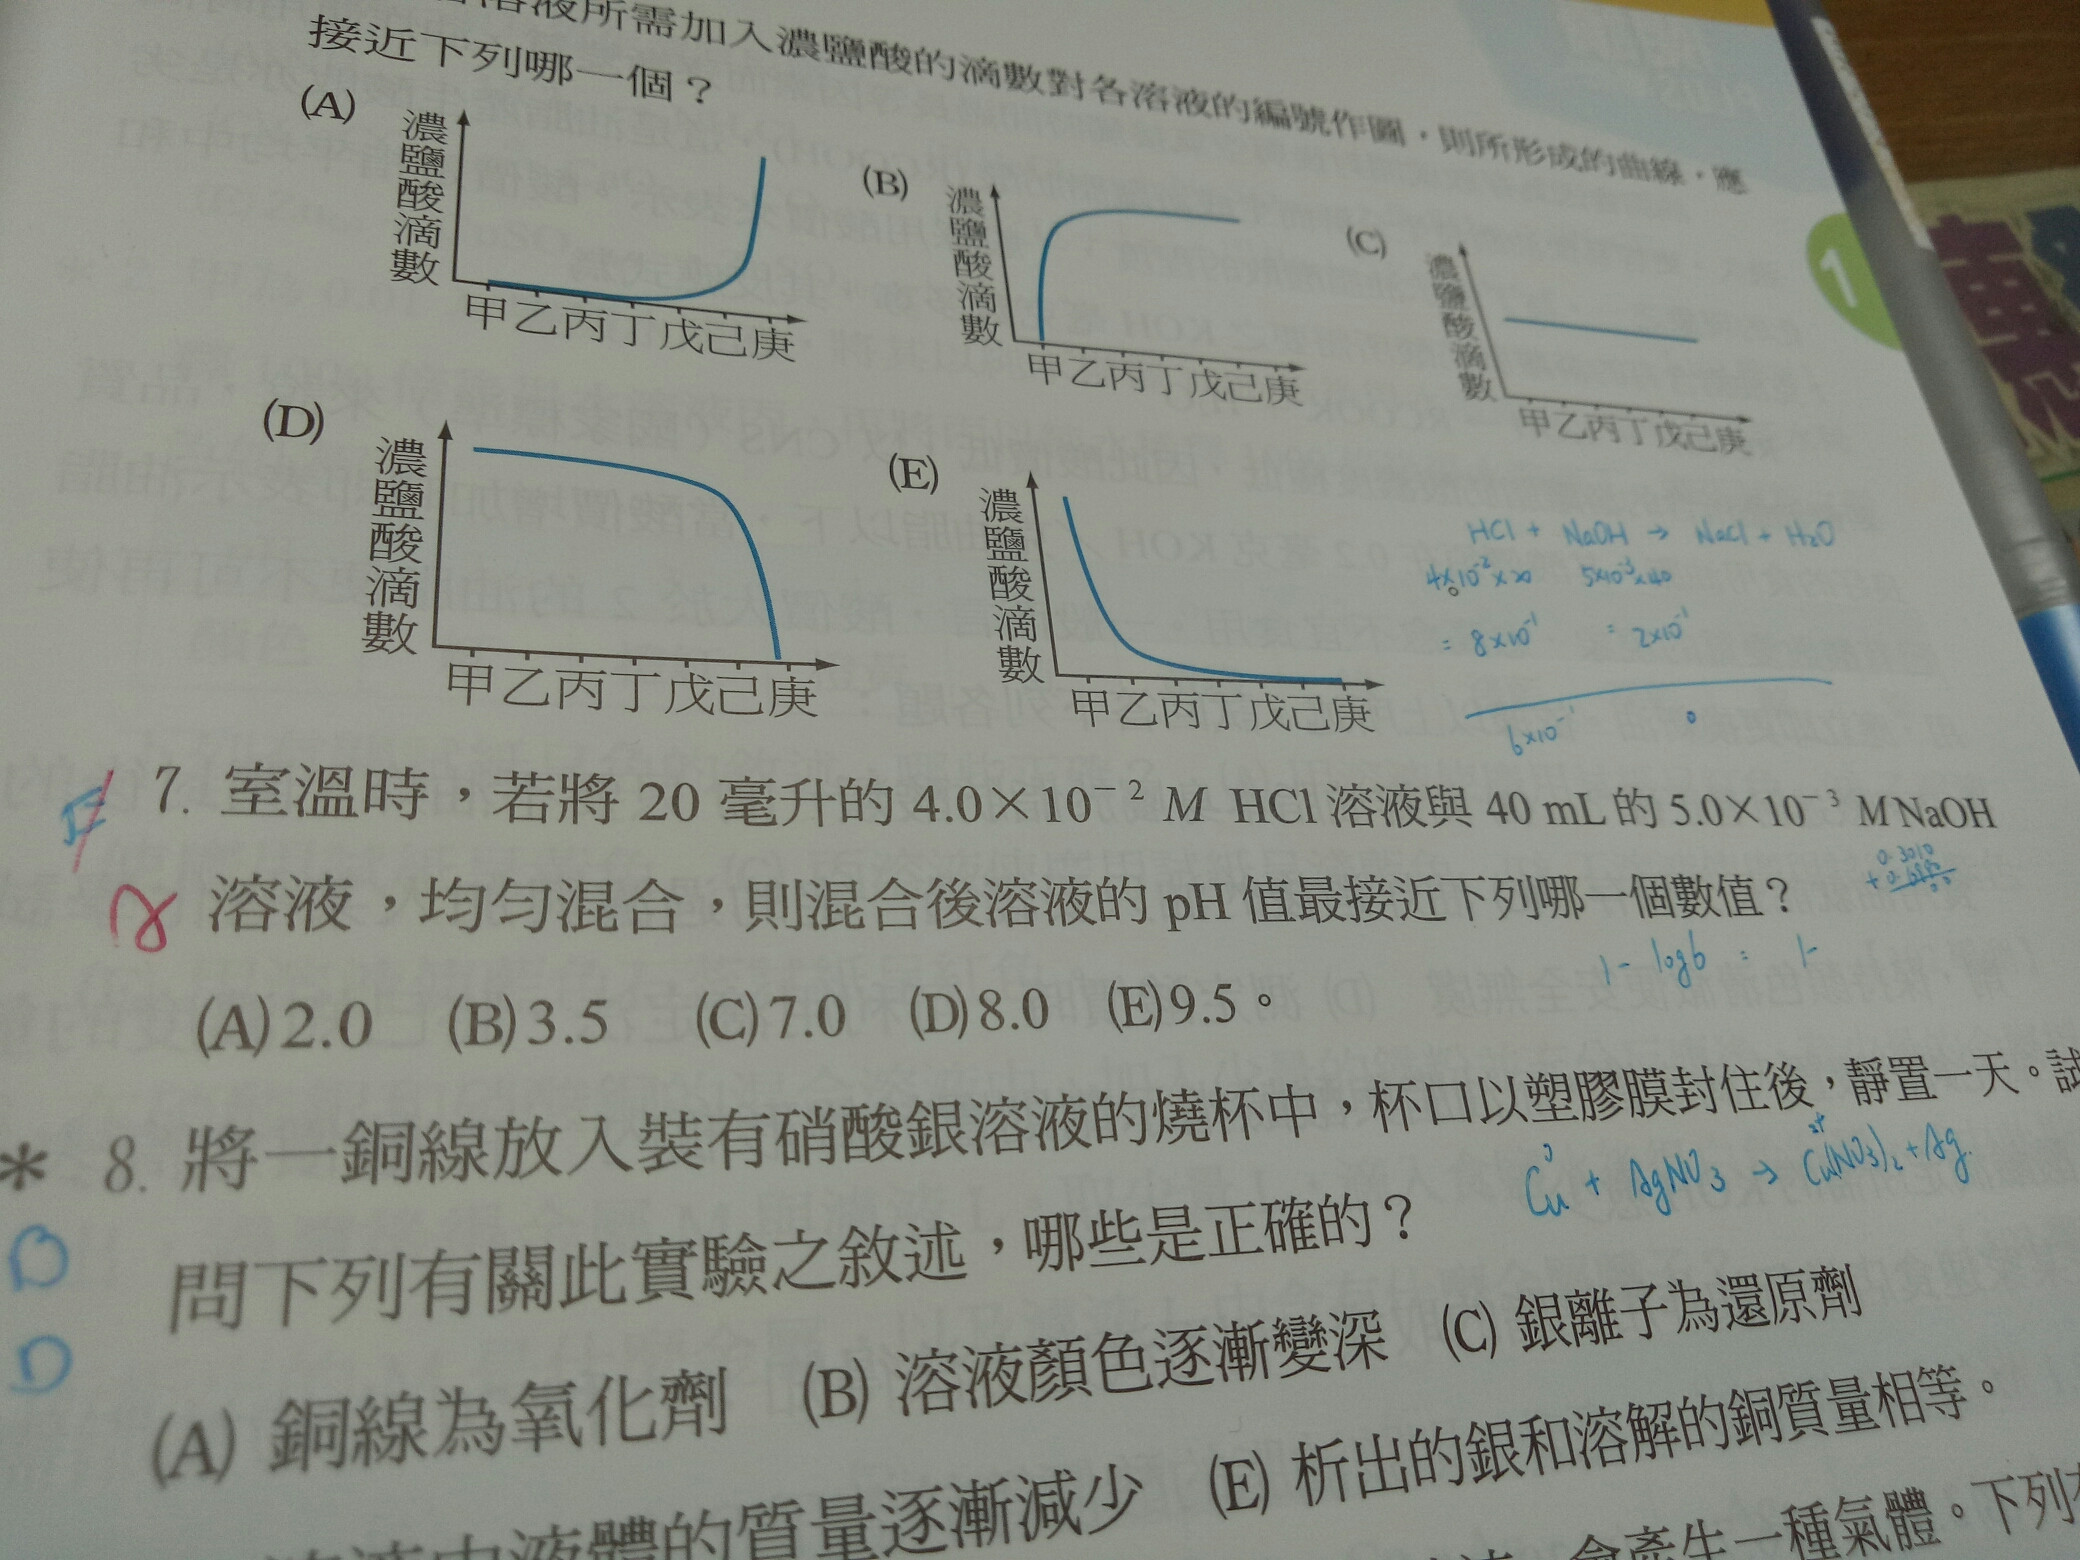 溶液所需加入濃鹽酸的滴數對各溶液的編號作圖，則所形成的曲線，應
接近下列哪一個？
(A)
濃鹽酸滴數
甲乙丙丁戊己庚
(B)
濃鹽酸滴數
甲乙丙丁戊己庚
(C)
濃鹽酸滴數
甲乙丙丁戊己庚
1
(D)
濃鹽酸滴數
甲乙丙丁戊己庚
(E)
濃鹽酸滴數
甲乙丙丁戊己庚
HCl + NaOH → NaCl + H₂O
4×10⁻²×20 5×10⁻³×40
= 8×10⁻¹ = 2×10⁻¹
6×10⁻¹ 0
7. 室溫時，若將 20 毫升的 4.0×10⁻² M HCl 溶液與 40 mL 的 5.0×10⁻³ M NaOH
溶液，均勻混合，則混合後溶液的 pH 值最接近下列哪一個數值？
0.3010
1- log6 = 1-
(A) 2.0 (B) 3.5 (C) 7.0 (D) 8.0 (E) 9.5。
* 8. 將一銅線放入裝有硝酸銀溶液的燒杯中，杯口以塑膠膜封住後，靜置一天。試
Cu⁰ + AgNO₃ → Cu²⁺(NO₃)₂ + Ag
B
問下列有關此實驗之敘述，哪些是正確的？
D
(A) 銅線為氧化劑 (B) 溶液顏色逐漸變深 (C) 銀離子為還原劑
溶液中液體的質量逐漸減少 (E) 析出的銀和溶解的銅質量相等。
會產生一種氣體。下列